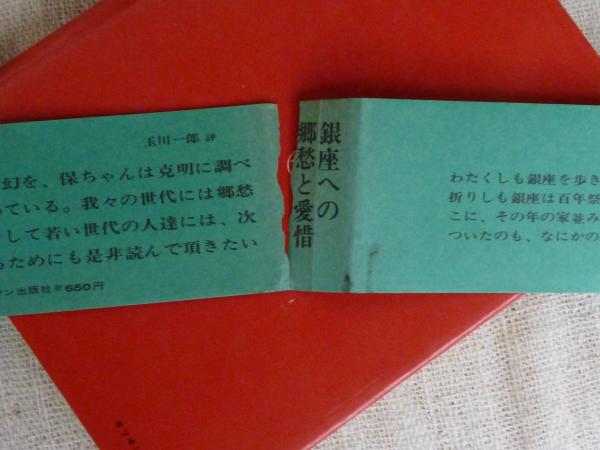 わたくしも銀座を歩き
折りしも銀座は百年祭
こに、その年の家並み
ついたのも、なにかの
銀座への
郷愁と愛惜
玉川一郎 評
幻を、保ちゃんは克明に調べ
っている。我々の世代には郷愁
して若い世代の人達には、次
ためにも是非読んで頂きたい
ン出版社 650円